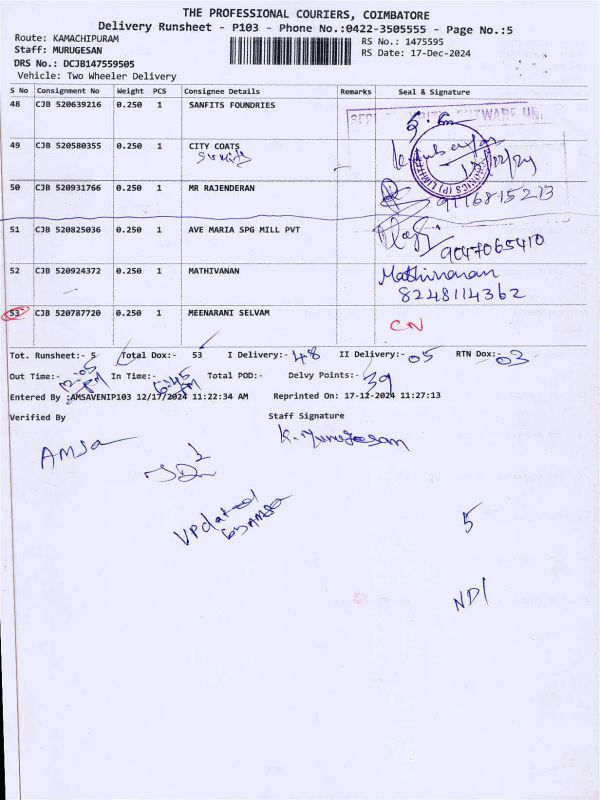 THE PROFESSIONAL COURIERS, COIMBATORE
Delivery Runsheet - P103 - Phone No.:0422-3505555 - Page No.:5
Route: KAMACHIPURAM RS No.: 1475595
Staff: MURUGESAN RS Date: 17-Dec-2024
DRS No.: DCJB147559505
Vehicle: Two Wheeler Delivery
S No Consignment No Weight PCS Consignee Details Remarks Seal & Signature
48 CJB 520639216 0.250 1 SANFITS FOUNDRIES
49 CJB 520580355 0.250 1 CITY COATS
17/12/24
50 CJB 520931766 0.250 1 MR RAJENDERAN
9116815213
51 CJB 520825036 0.250 1 AVE MARIA SPG MILL PVT
9047065410
52 CJB 520924372 0.250 1 MATHIVANAN Mathivanan
8248114362
53 CJB 520787720 0.250 1 MEENARANI SELVAM
CN
Tot. Runsheet:- 5 Total Dox:- 53 I Delivery:- 48 II Delivery:- 05 RTN Dox:- 03
Out Time:- In Time:- 6:45 PM Total POD:- Delvy Points:- 39
Entered By :AMSAVENIP103 12/17/2024 11:22:34 AM Reprinted On: 17-12-2024 11:27:13
Verified By Staff Signature
AMSa K. Murugesan
Updated
by AMSa
5
NDI